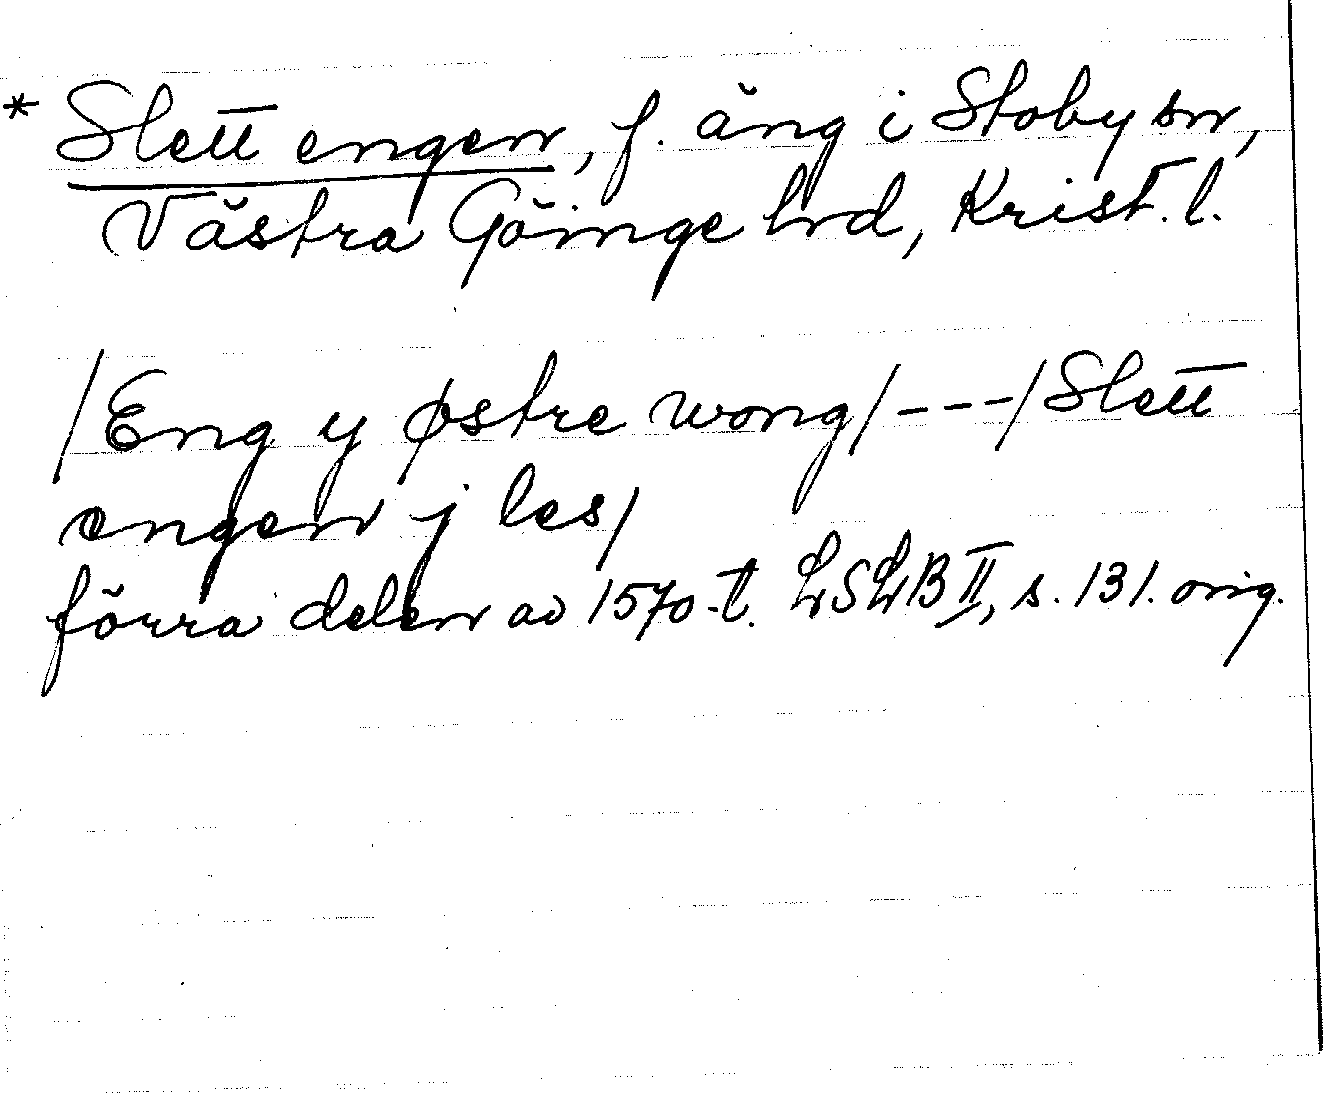 * Slett engen, f. äng i Stoby sn,
Västra Göinge hrd, Krist. l.
/Eng y østre wong/ - - - /Slett
engen j les/
förra delen av 1570-t. LSLB II, s. 131. orig.